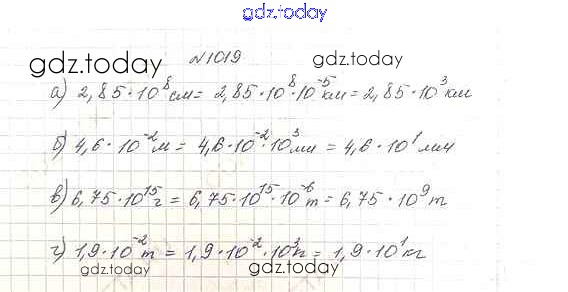 gdz.today
№1019
gdz.today gdz.today
а) 2,85·10⁸см = 2,85·10⁸·10⁻⁵км = 2,85·10³км
б) 4,6·10⁻²м = 4,6·10⁻²·10³мм = 4,6·10¹мм
в) 6,75·10¹⁵г = 6,75·10¹⁵·10⁻⁶т = 6,75·10⁹т
г) 1,9·10⁻²т = 1,9·10⁻²·10³кг = 1,9·10¹кг
gdz.today gdz.today